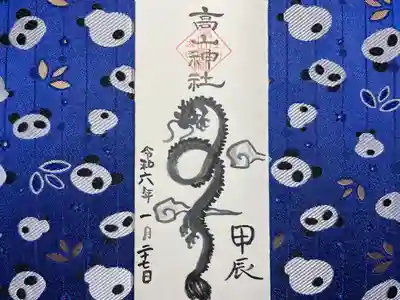 高山神社
甲辰
令和六年
一月二十七日